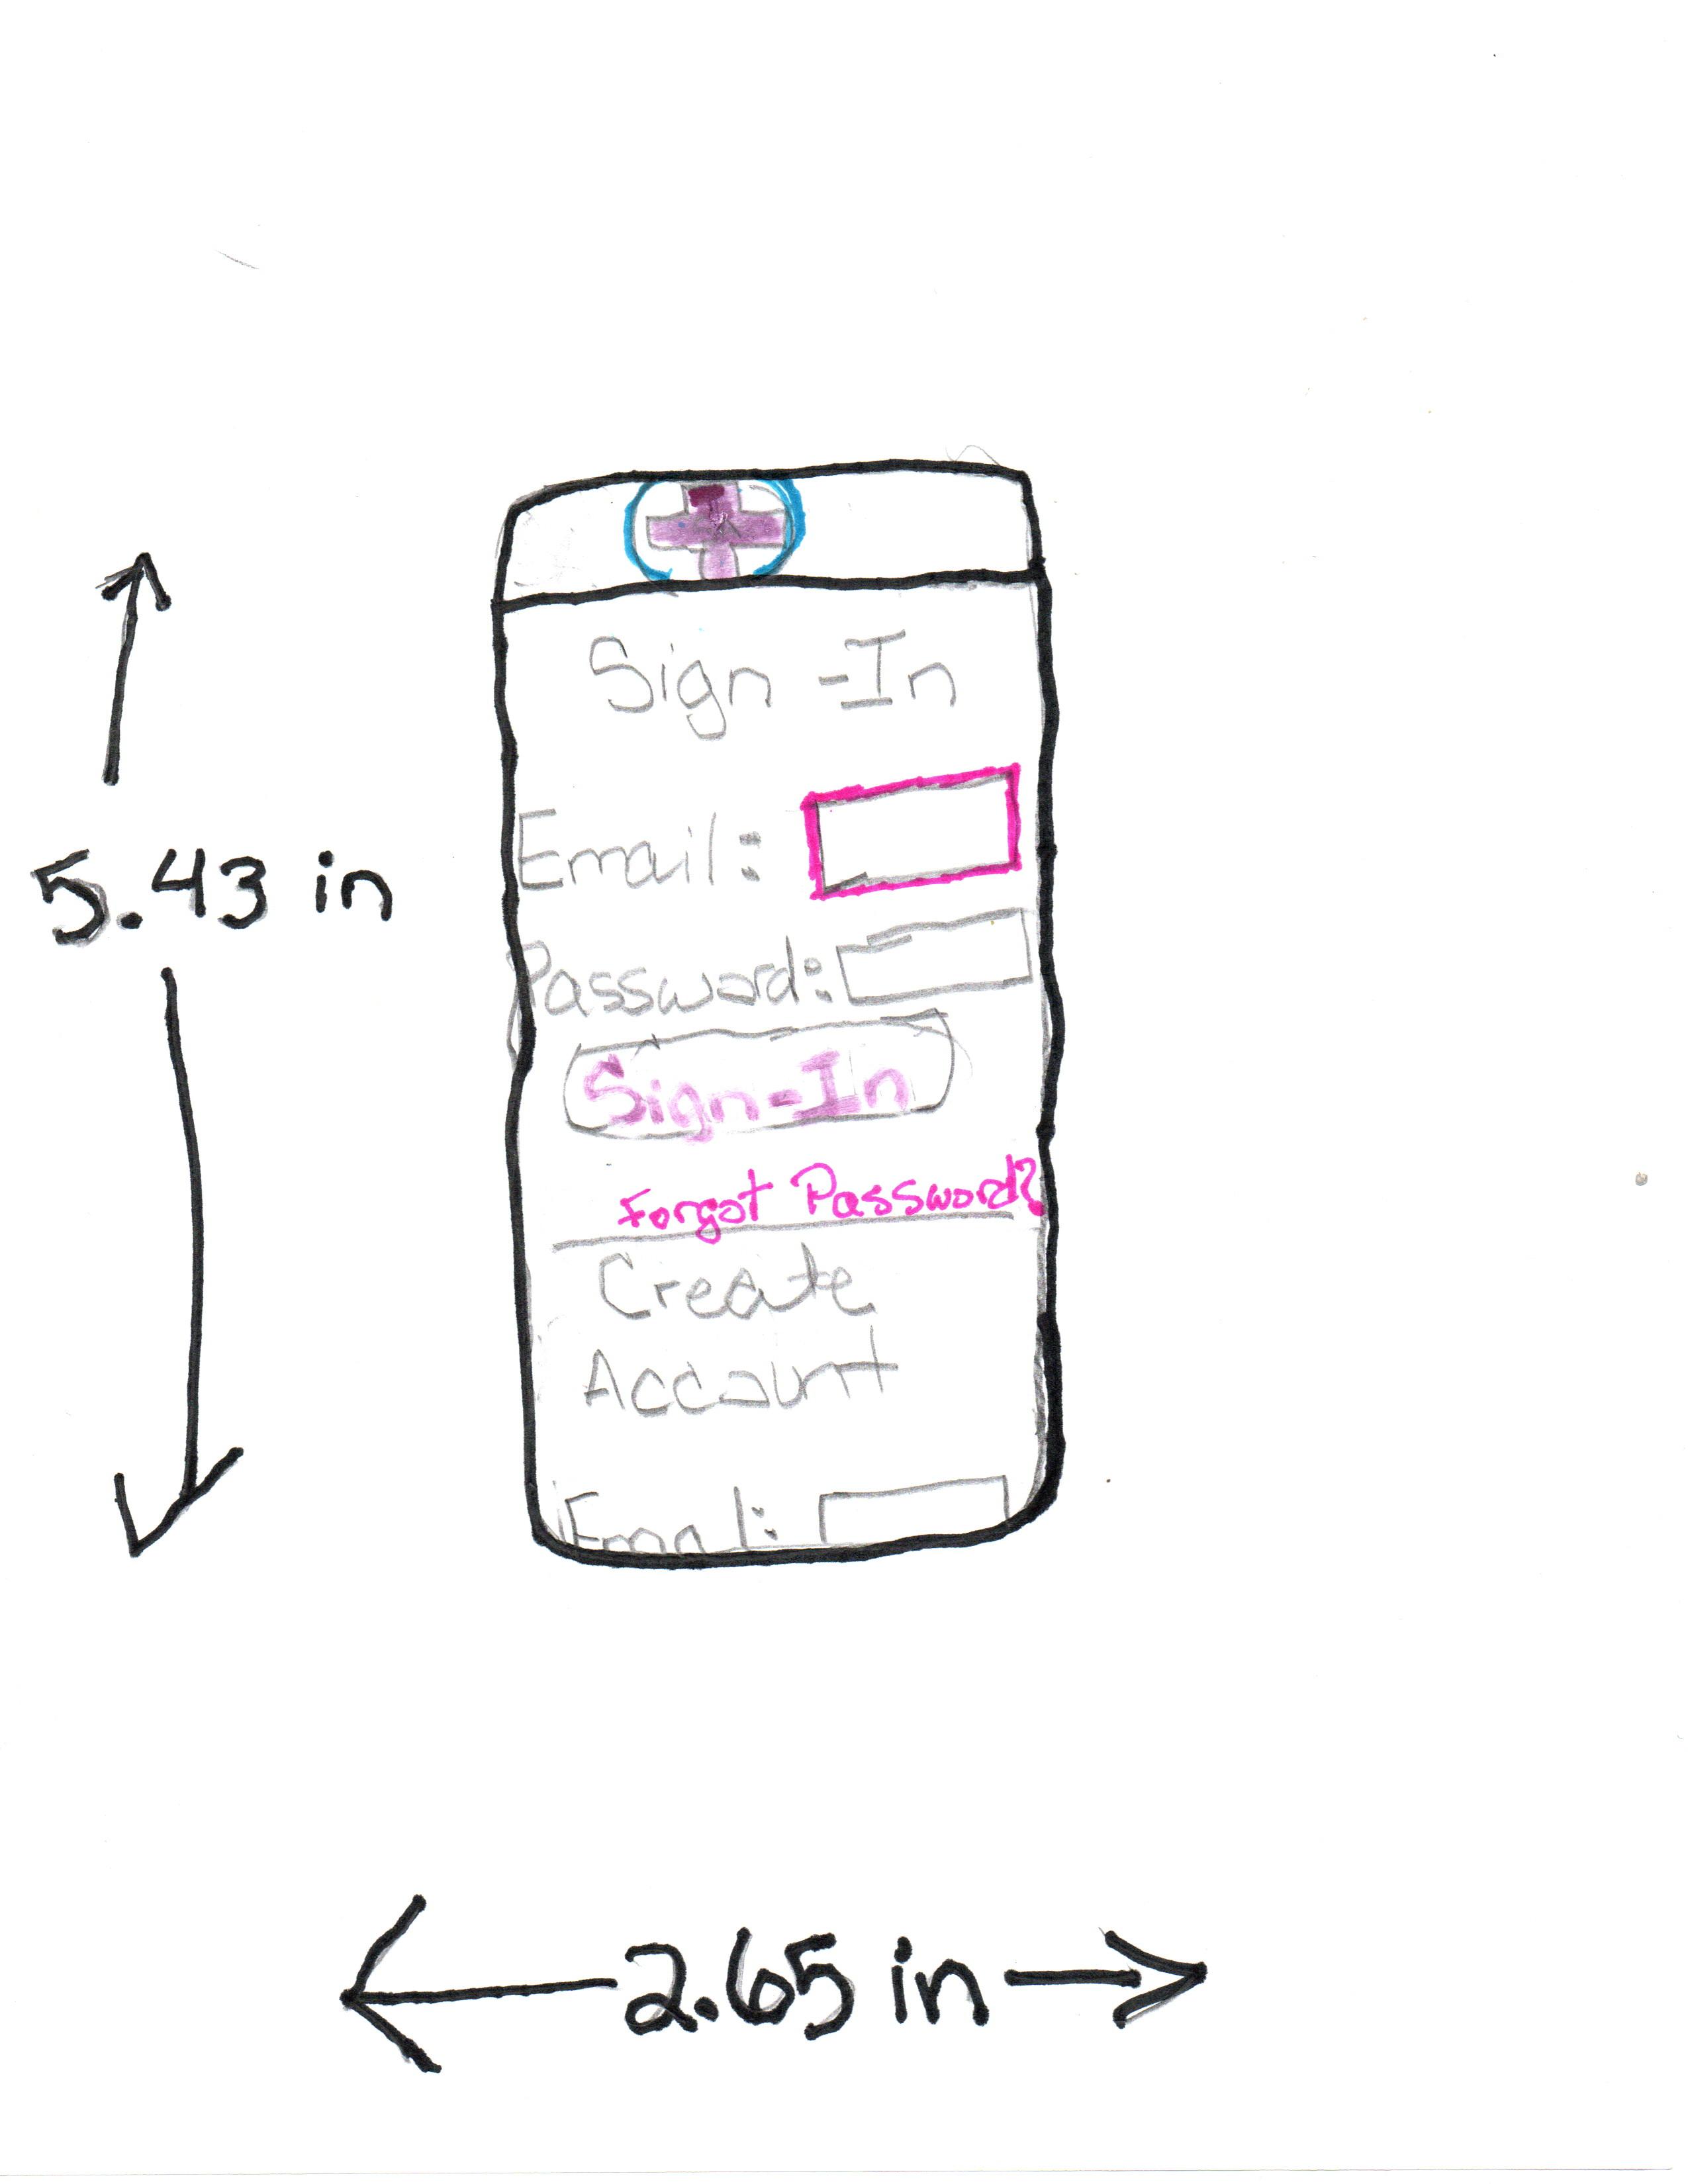 Sign-In
Email:
Password:
Sign-In
Forgot Password?
Create
Account
Email:
5.43 in
2.65 in